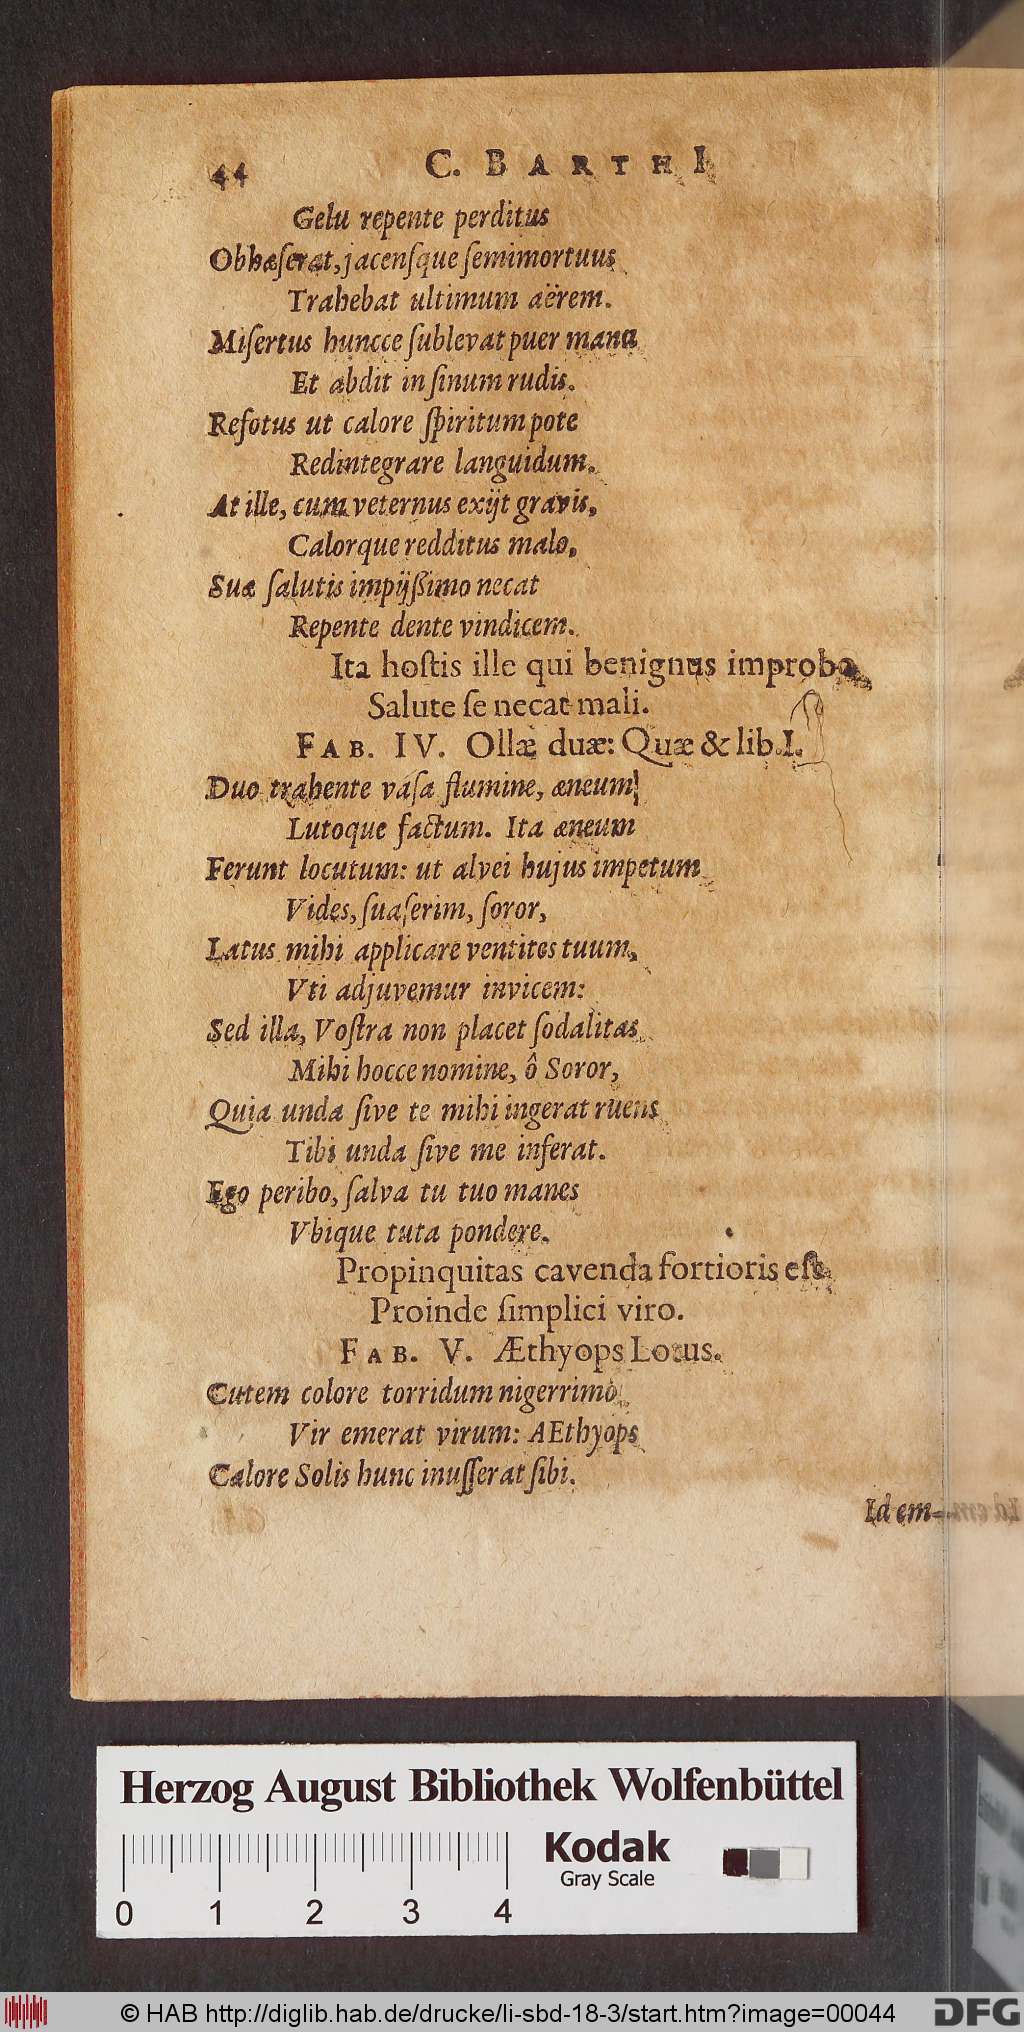 44 C. BARTHI
Gelu repente perditus
Obhæſerat, jacensſque ſemimortuus
Trahebat ultimum aërem.
Miſertus huncce ſublevat puer manu
Et abdit in ſinum rudis.
Refotus ut calore ſpiritum pote
Redintegrare languidum.
At ille, cum veternus exijt gravis,
Calorque redditus malo,
Suæ ſalutis impijßimo necat
Repente dente vindicem.
Ita hoſtis ille qui benignus improbo
Salute ſe necat mali.
FAB. IV. Ollæ duæ: Quæ & lib. I.
Duo trahente váſa flumine, æneum
Lutoque factum. Ita æneum
Ferunt locutum: ut alvei hujus impetum
Vides, ſuaſerim, ſoror,
Latus mihi applicare ventites tuum,
Vti adjuvemur invicem:
Sed illa, Voſtra non placet ſodalitas
Mihi hocce nomine, ô Soror,
Quia unda ſive te mihi ingerat ruens
Tibi unda ſive me inferat.
Ego peribo, ſalva tu tuo manes
Vbique tuta pondere.
Propinquitas cavenda fortioris eſt
Proinde ſimplici viro.
FAB. V. Æthyops Lotus.
Cutem colore torridum nigerrimo
Vir emerat virum: AEthyops
Calore Solis hunc inuſſerat ſibi.
Id em-
Herzog August Bibliothek Wolfenbüttel
Kodak
Gray Scale
0 1 2 3 4
© HAB http://diglib.hab.de/drucke/li-sbd-18-3/start.htm?image=00044
DFG